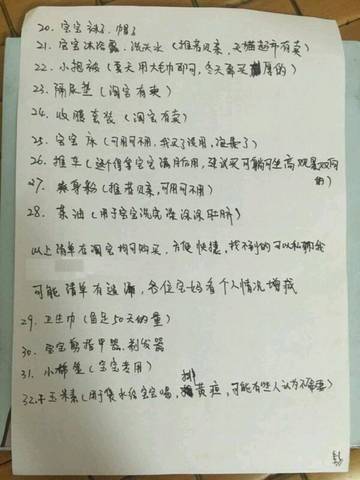 20. 宝宝袜子、帽子
21. 宝宝沐浴露、洗发水（推荐贝亲，天猫超市有卖）
22. 小抱被（夏天用大毛巾即可，冬天要买厚的）
23. 隔尿垫（淘宝有卖）
24. 收腹套装（淘宝有卖）
25. 宝宝床（可用可不用，我买了没用，浪费了）
26. 推车（这个得拿宝宝满月后用，建议买可躺可坐高观景双向的）
27. 爽身粉（推荐贝亲，可用可不用）
28. 茶油（用于宝宝洗完澡涂涂肚脐）
以上清单在淘宝均可购买，方便快捷，找不到的可以私聊我
可能清单有遗漏，各位宝妈看个人情况增减
29. 卫生巾（自足50天的量）
30. 宝宝剪指甲器、剃发器
31. 小棉垫（宝宝专用）
32. 干玉米素（用于煲水给宝宝喝，排黄疸，可能有些人认为不需要）